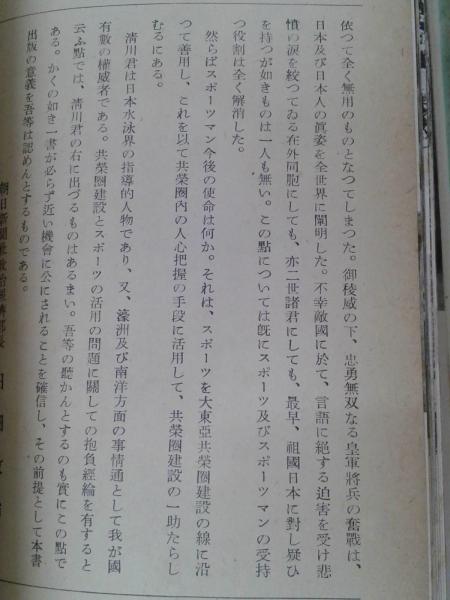 依つて全く無用のものとなつてしまつた。御稜威の下、忠勇無双なる皇軍將兵の奮戰は、
日本及び日本人の眞姿を全世界に闡明した。不幸敵國に於て、言語に絶する迫害を受け悲
憤の涙を絞つてゐる在外同胞にしても、亦二世諸君にしても、最早、祖國日本に對し疑ひ
を持つが如きものは一人も無い。この點については既にスポーツ及びスポーツマンの受持
つ役割は全く解消した。
然らばスポーツマン今後の使命は何か。それは、スポーツを大東亞共榮圈建設の線に沿
つて善用し、これを以て共榮圈内の人心把握の手段に活用して、共榮圈建設の一助たらし
むるにある。
淸川君は日本水泳界の指導的人物であり、又、濠洲及び南洋方面の事情通として我が國
有數の權威者である。共榮圈建設とスポーツの活用の問題に關しての抱負經綸を有すると
云ふ點では、淸川君の右に出づるものはあるまい。吾等の聽かんとするのも實にこの點で
ある。かくの如き一書が必らず近い機會に公にされることを確信し、その前提として本書
出版の意義を吾等は認めんとするものである。
朝日新聞社政治經濟部長